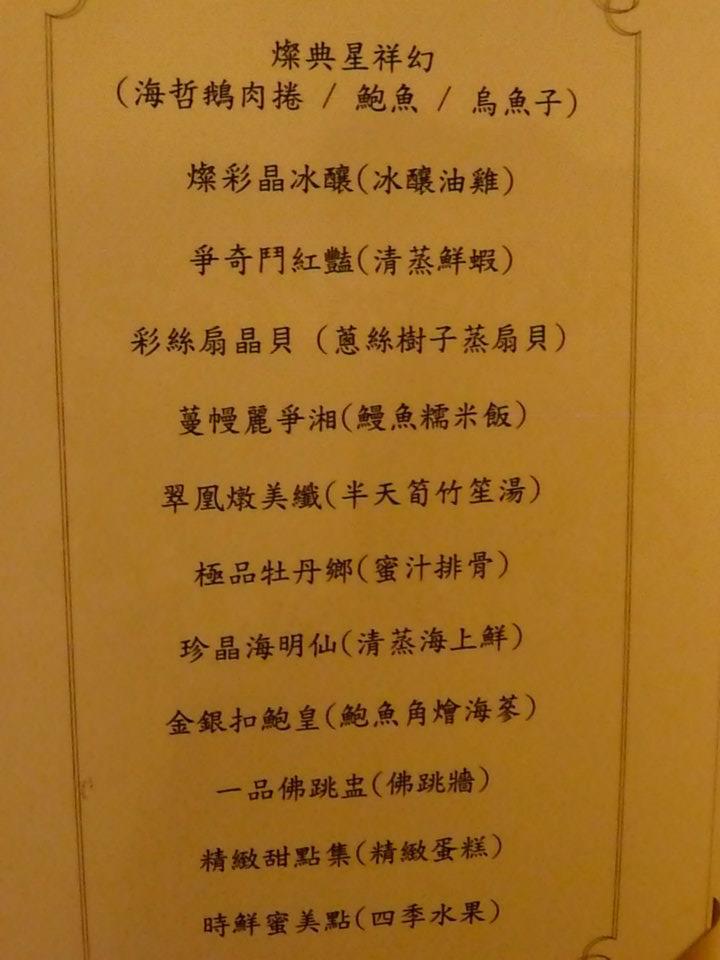 燦典星祥幻
(海哲鵝肉捲 / 鮑魚 / 烏魚子)
燦彩晶冰釀(冰釀油雞)
爭奇鬥紅豔(清蒸鮮蝦)
彩絲扇晶貝 (蔥絲樹子蒸扇貝)
蔓幔麗爭湘(鰻魚糯米飯)
翠凰燉美纖(半天筍竹笙湯)
極品牡丹鄉(蜜汁排骨)
珍晶海明仙(清蒸海上鮮)
金銀扣鮑皇(鮑魚角燴海蔘)
一品佛跳盅(佛跳牆)
精緻甜點集(精緻蛋糕)
時鮮蜜美點(四季水果)